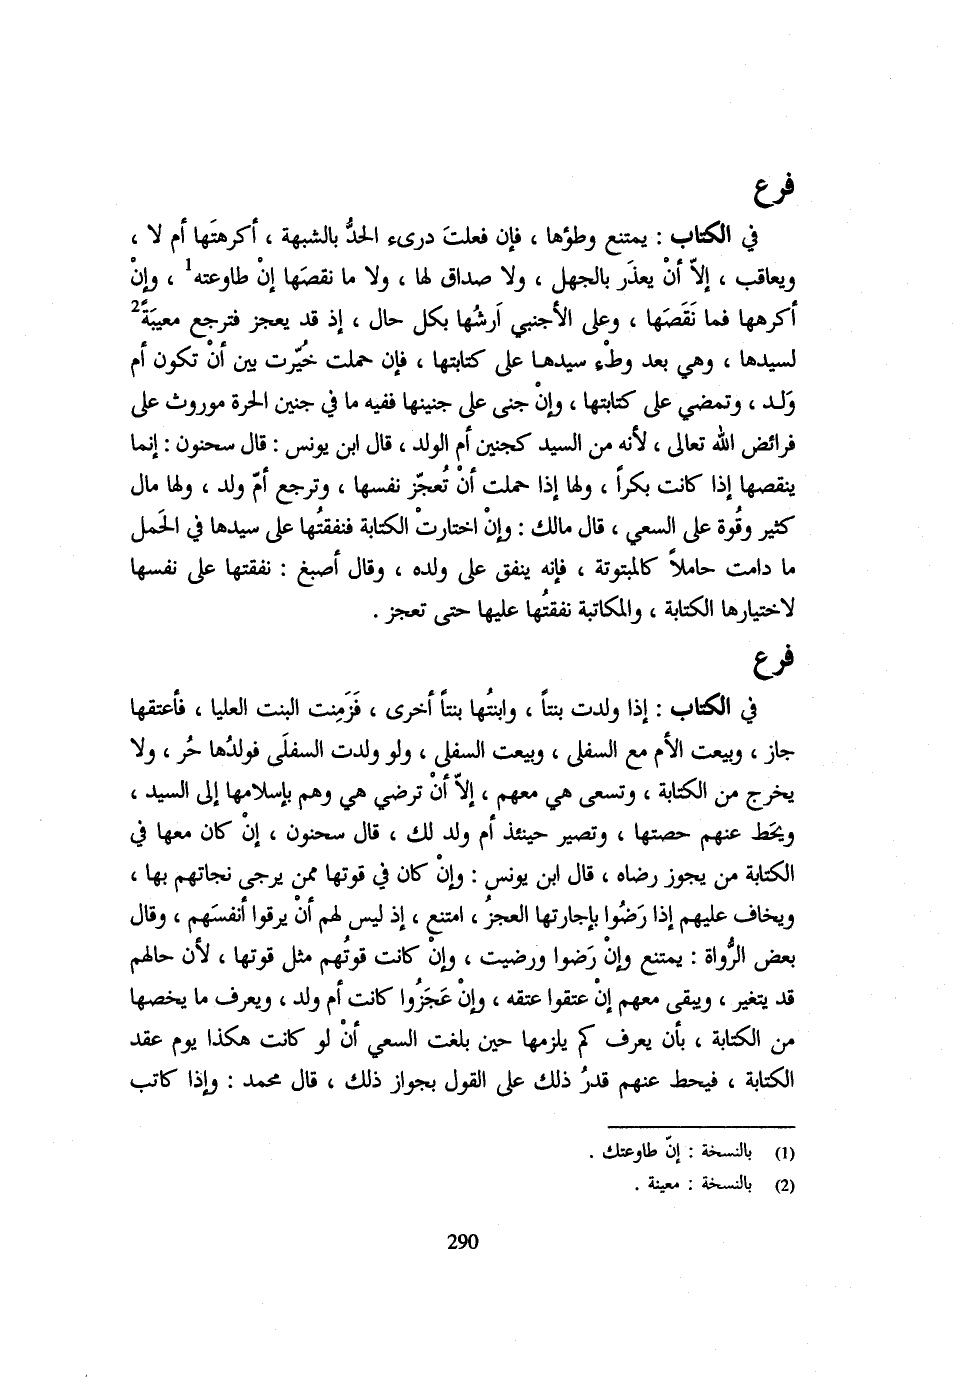 فرع
في الكتاب : يمتنع وطؤها ، فإن فعلتَ درىء الحدُّ بالشبهة ، أكرهتَها أم لا ،
ويعاقب ، إلاّ أنْ يعذَر بالجهل ، ولا صداق لها ، ولا ما نقصَها إنْ طاوعته1 ، وإنْ
أكرهها فما نَقَصَها ، وعلى الأجنبي اَرشُها بكل حال ، إذ قد يعجز فترجع معيبَةً2
لسيدها ، وهي بعد وطْء سيدهـا على كتابتها ، فإن حملت خُيّرت بين أنْ تكون أم
وَلـد ، وتمضي على كتابتها ، وإنْ جنى على جنينها ففيه ما في جنين الحرة موروث على
فرائض الله تعالى ، لأنه من السيد كجنين أم الولد ، قال ابن يونس : قال سحنون : إنما
ينقصها إذا كانت بكراً ، ولها إذا حملت أنْ تُعجّز نفسها ، وترجع أمّ ولد ، ولها مال
كثير وقُوة على السعي ، قال مالك : وإنْ اختارتْ الكتابة فنفقتُها على سيدها في الحَمل
ما دامت حاملاً كالمبتوتة ، فإنه ينفق على ولده ، وقال أصبغ : نفقتها على نفسها
لاختيارها الكتابة ، والمكاتبة نفقتُها عليها حتى تعجز .
فرع
في الكتاب : إذا ولدت بنتاً ، وابنتُها بنتاً أخرى ، فَزَمِنت البنت العليا ، فأعتقها
جاز ، وبيعت الأم مع السفلى ، وبيعت السفلى ، ولو ولدت السفلَى فولدُها حُر ، ولا
يخرج من الكتابة ، وتسعى هي معهم ، إلاّ أنْ ترضي هي وهم بإسلامها إلى السيد ،
ويحَط عنهم حصتها ، وتصير حينئذ أم ولد لك ، قال سحنون ، إنْ كان معها في
الكتابة من يجوز رضاه ، قال ابن يونس : وإنْ كان في قوتها ممن يرجى نجاتهم بها ،
ويخاف عليهم إذا رَضُوا بإجارتها العجزُ ، امتنع ، إذ ليس لهم أنْ يرقوا أنفسَهم ، وقال
بعض الرُّواة : يمتنع وإنْ رَضوا ورضيت ، وإنْ كانت قوتُهم مثل قوتها ، لأن حالهم
قد يتغير ، ويبقى معهم إنْ عتقوا عتقه ، وإنْ عَجَزُوا كانت أم ولد ، ويعرف ما يخصها
من الكتابة ، بأن يعرف كم يلزمها حين بلغت السعي أنْ لو كانت هكذا يوم عقد
الكتابة ، فيحط عنهم قدرُ ذلك على القول بجواز ذلك ، قال محمد : وإذا كاتب
(1) بالنسخة : إنّ طاوعتك .
(2) بالنسخة : معينة .
290